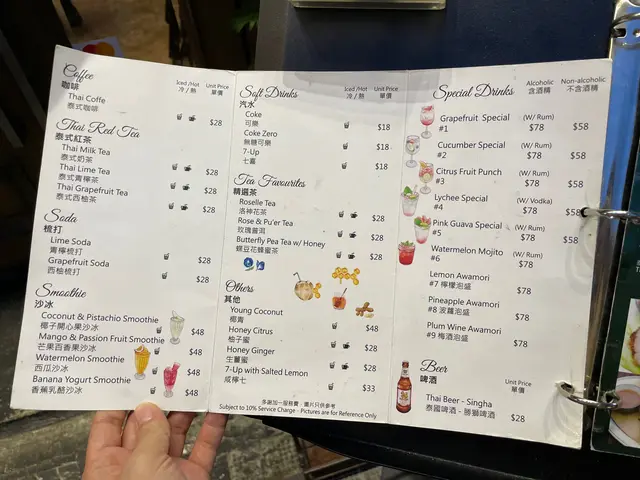 Coffee
咖啡
Iced /Hot
冷 / 熱
Unit Price
單價
Thai Coffe
泰式咖啡
$28
Thai Red Tea
泰式紅茶
Thai Milk Tea
泰式奶茶
$28
Thai Lime Tea
泰式青檸茶
$28
Thai Grapefruit Tea
泰式西柚茶
$28
Soda
梳打
Lime Soda
青檸梳打
$28
Grapefruit Soda
西柚梳打
$28
Smoothie
沙冰
Coconut & Pistachio Smoothie
椰子開心果沙冰
$48
Mango & Passion Fruit Smoothie
芒果百香果沙冰
$48
Watermelon Smoothie
西瓜沙冰
$48
Banana Yogurt Smoothie
香蕉乳酪沙冰
$48
Soft Drinks
汽水
Iced /Hot
冷 / 熱
Unit Price
單價
Coke
可樂
$18
Coke Zero
無糖可樂
$18
7-Up
七喜
$18
Tea Favourites
精選茶
Roselle Tea
洛神花茶
$28
Rose & Pu'er Tea
玫瑰普洱
$28
Butterfly Pea Tea w/ Honey
蝶豆花蜂蜜茶
$28
Others
其他
Young Coconut
椰青
$48
Honey Citrus
柚子蜜
$28
Honey Ginger
生薑蜜
$28
7-Up with Salted Lemon
咸檸七
$33
多謝加一服務費，圖片只供參考
Subject to 10% Service Charge - Pictures are for Reference Only
Special Drinks
Alcoholic
含酒精
Non-alcoholic
不含酒精
Grapefruit Special
#1
(W/ Rum)
$78
$58
Cucumber Special
#2
(W/ Rum)
$78
$58
Citrus Fruit Punch
#3
(W/ Rum)
$78
$58
Lychee Special
#4
(W/ Vodka)
$78
$58
Pink Guava Special
#5
(W/ Rum)
$78
$58
Watermelon Mojito
#6
(W/ Rum)
$78
Lemon Awamori
#7 檸檬泡盛
$78
Pineapple Awamori
#8 菠蘿泡盛
$78
Plum Wine Awamori
#9 梅酒泡盛
$78
Beer
啤酒
Unit Price
單價
Thai Beer - Singha
泰國啤酒 - 勝獅啤酒
$28